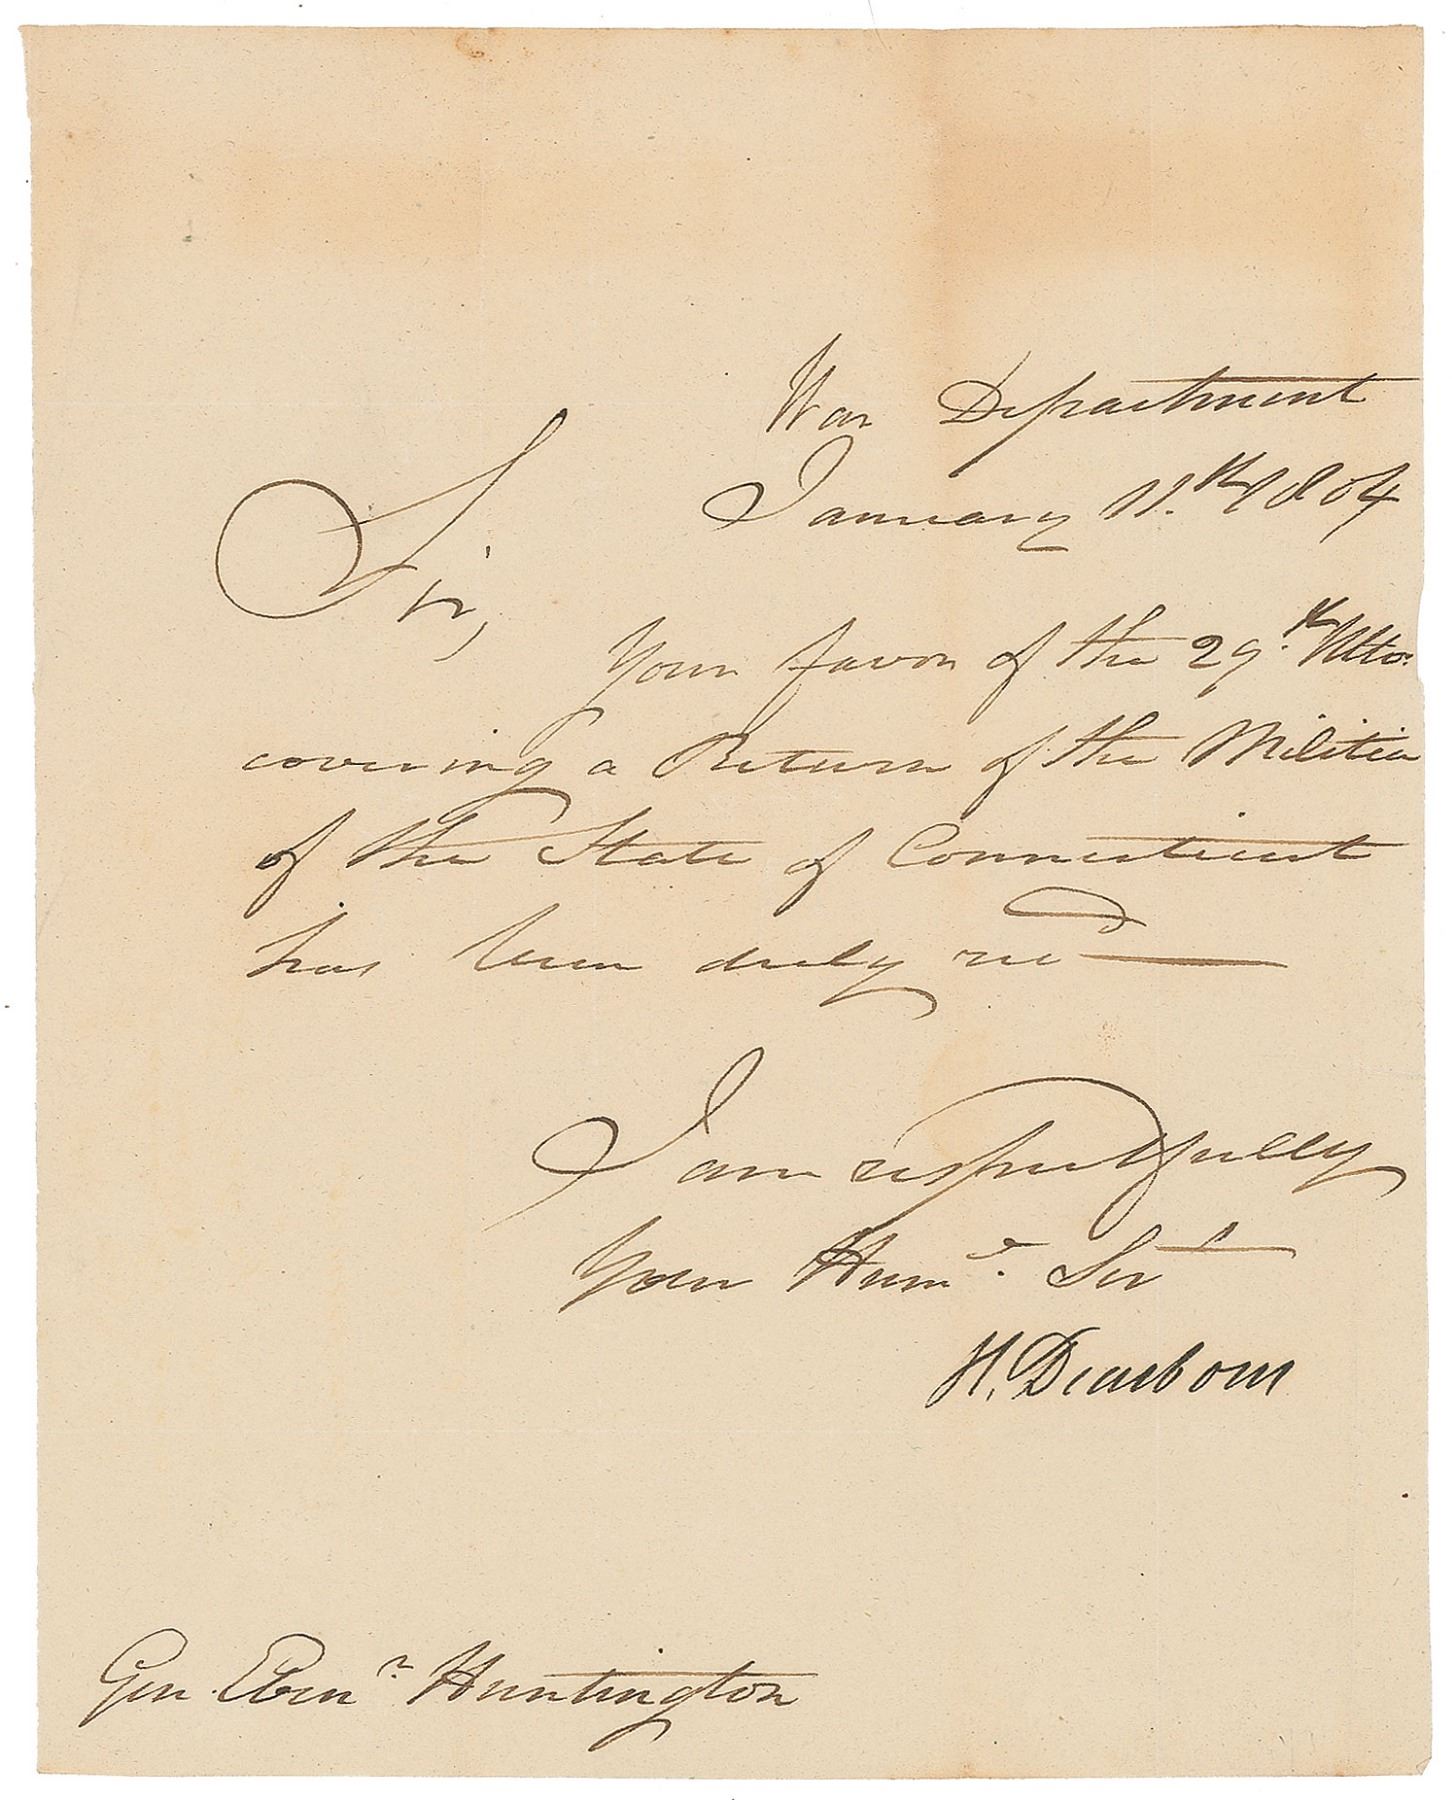 War Department
January 11.th 1804
Sir,
Your favor of the 29.th Ulto.
covering a Return of the Militia
of the State of Connecticut
has been duly recd
I am respectfully
Your Hume. Servt
H. Dearborn
Gen. Ebenr. Huntington